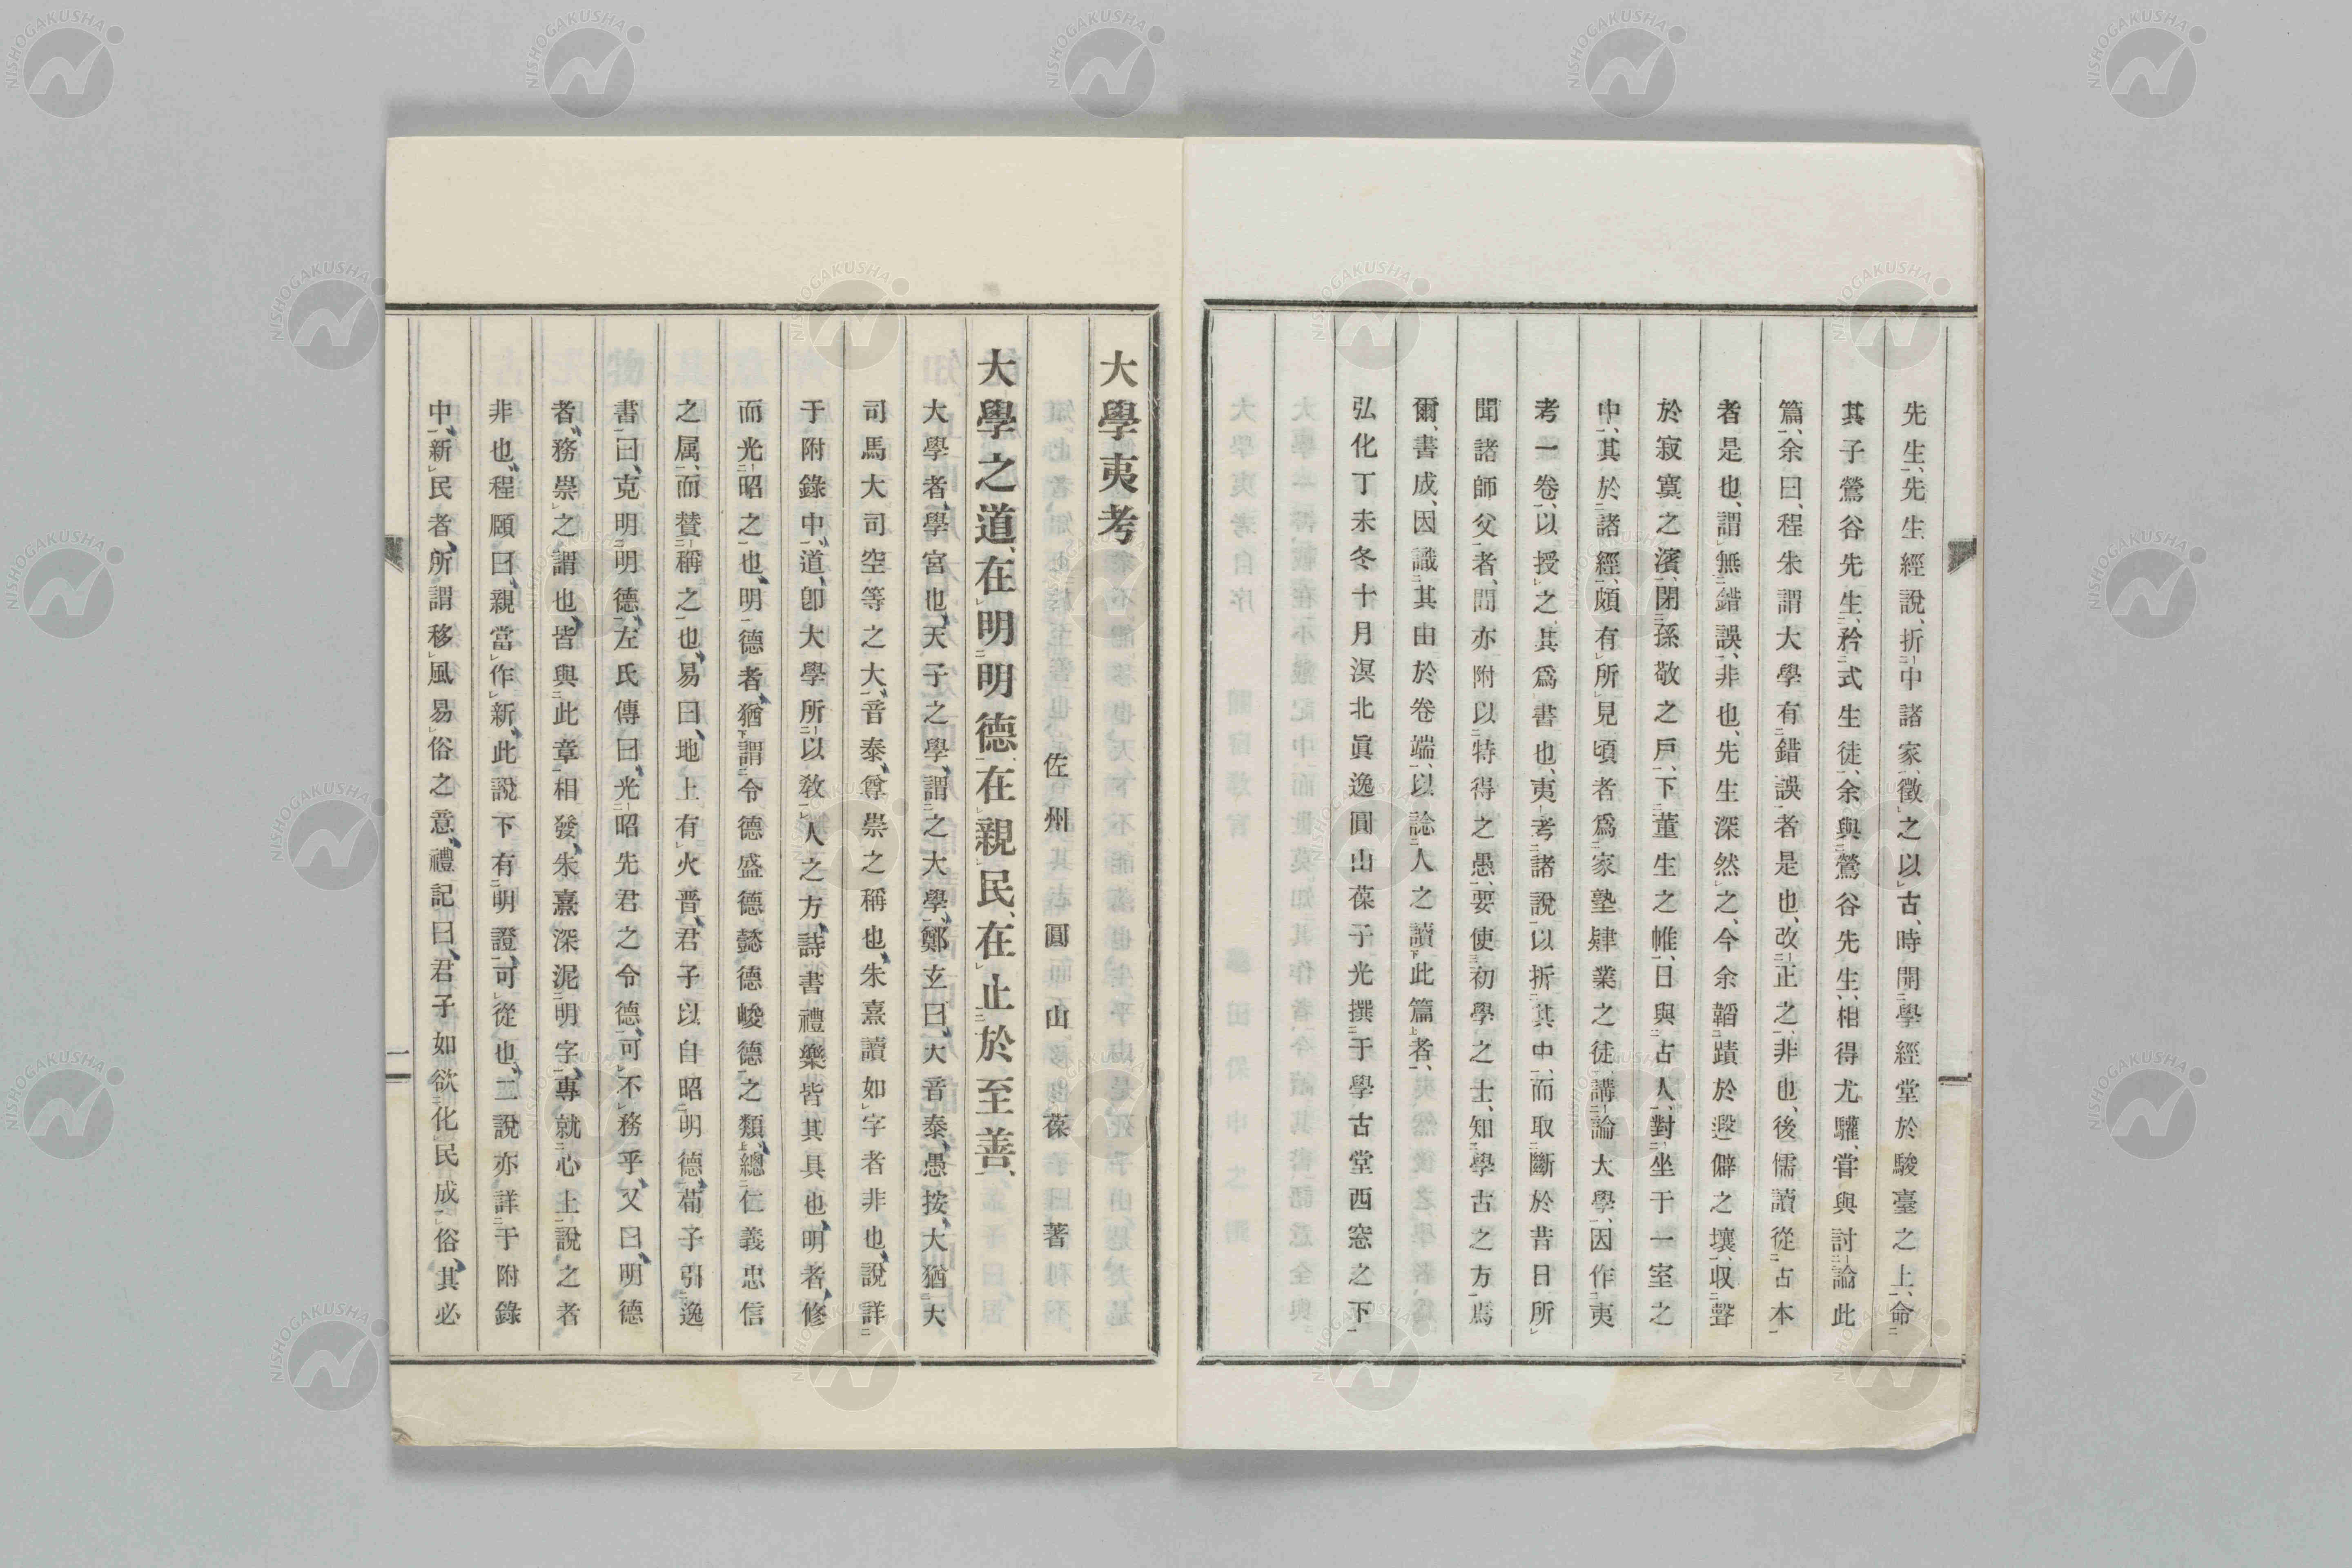 先生、先生經說、折中諸家、徵之以古、時開學經堂於駿臺之上、命
其子鶯谷先生、矜式生徒、余與鶯谷先生、相得尤驩、甞與討論此
篇、余曰、程朱謂大學有錯誤者是也、改正之、非也、後儒讀從古本
者是也、謂無錯誤、非也、先生深然之、今余韜蹟於遐僻之壤、収聲
於寂寞之濱、閉孫敬之戶、下董生之帷、日與古人、對坐于一室之
中、其於諸經、頗有所見、頃者爲家塾肄業之徒、講論大學、因作夷
考一卷、以授之、其爲書也、夷考諸說、以折其中、而取斷於昔日所
聞諸師父者、間亦附以特得之愚、要使初學之士、知學古之方焉
爾、書成、因識其由於卷端、以諗人之讀此篇者、
弘化丁未冬十月溟北眞逸圓山葆子光撰于學古堂西窓之下
大學夷考
佐州 圓山葆 著
大學之道、在明明德、在親民、在止於至善、
大學者、學宮也、天子之學、謂之大學、鄭玄曰、大音泰、愚按、大猶大
司馬大司空等之大、音泰、尊崇之稱也、朱熹讀如字者非也、說詳
于附錄中、道、卽大學所以敎人之方、詩書禮樂皆其具也、明者、修
而光昭之也、明德者、猶謂令德盛德懿德峻德之類、總仁義忠信
之属、而賛稱之也、易曰、地上有火晋、君子以自昭明德、荀子引逸
書曰、克明明德、左氏傳曰、光昭先君之令德、可不務乎、又曰、明德
者、務崇之謂也、皆與此章相發、朱熹深泥明字、專就心上說之者
非也、程頤曰、親當作新、此說下有明證、可從也、二說亦詳于附錄
中、新民者、所謂移風易俗之意、禮記曰、君子如欲化民成俗、其必
一
二
NISHOGAKUSHA